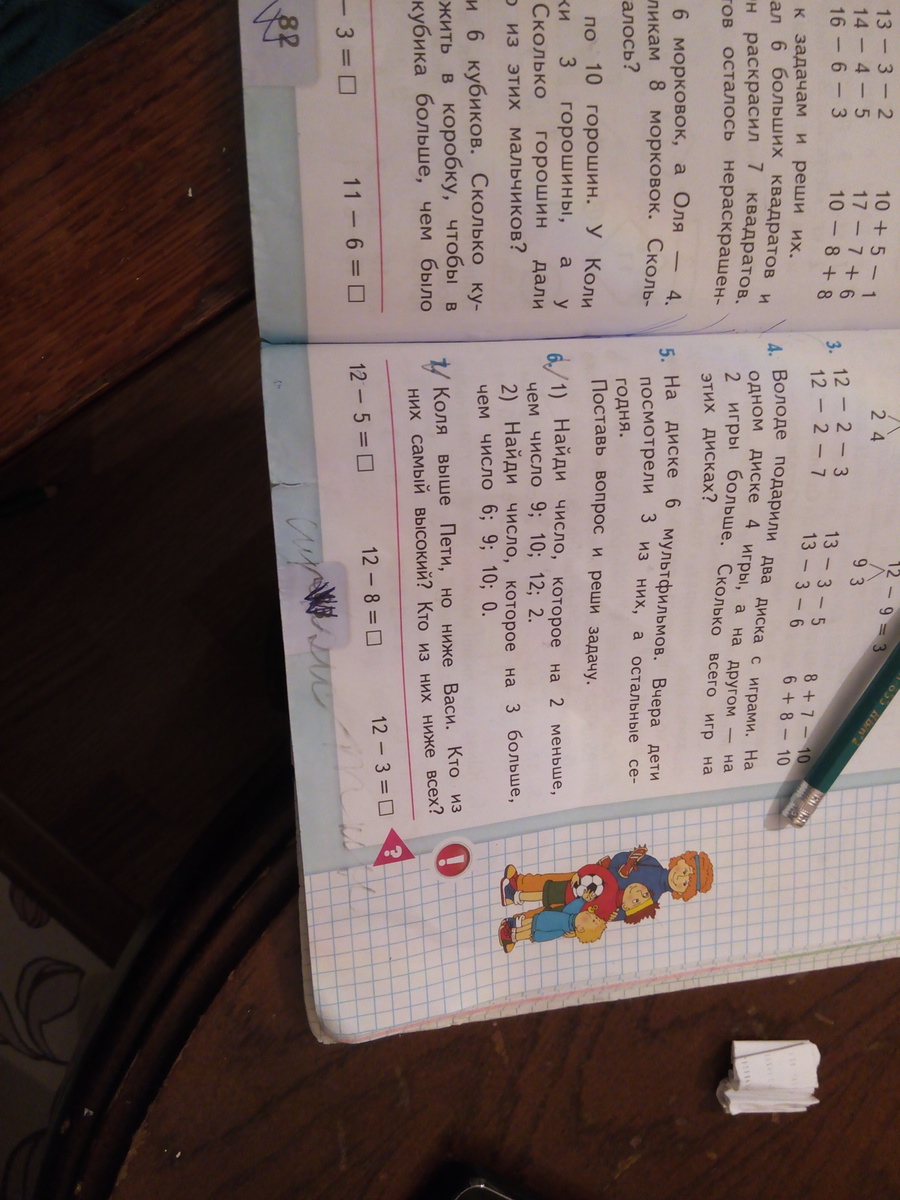 13 − 3 − 2 10 + 5 − 1
14 − 4 − 5 17 − 7 + 6
16 − 6 − 3 10 − 8 + 8
к задачам и реши их.
ал 6 больших квадратов и
н раскрасил 7 квадратов.
тов осталось нераскрашен-
6 морковок, а Оля — 4.
ликам 8 морковок. Сколь-
алось?
по 10 горошин. У Коли
ки 3 горошины, а у
Сколько горошин дали
о из этих мальчиков?
и 6 кубиков. Сколько ку-
жить в коробку, чтобы в
кубика больше, чем было
− 3 = □ 11 − 6 = □
82
12 − 9 = 3
2 4 9 3
3. 12 − 2 − 3 13 − 3 − 5 8 + 7 − 10
12 − 2 − 7 13 − 3 − 6 6 + 8 − 10
4. Володе подарили два диска с играми. На
одном диске 4 игры, а на другом — на
2 игры больше. Сколько всего игр на
этих дисках?
5. На диске 6 мультфильмов. Вчера дети
посмотрели 3 из них, а остальные се-
годня.
Поставь вопрос и реши задачу.
6. 1) Найди число, которое на 2 меньше,
чем число 9; 10; 12; 2.
2) Найди число, которое на 3 больше,
чем число 6; 9; 10; 0.
7. Коля выше Пети, но ниже Васи. Кто из
них самый высокий? Кто из них ниже всех?
!
12 − 5 = □ 12 − 8 = □ 12 − 3 = □
?